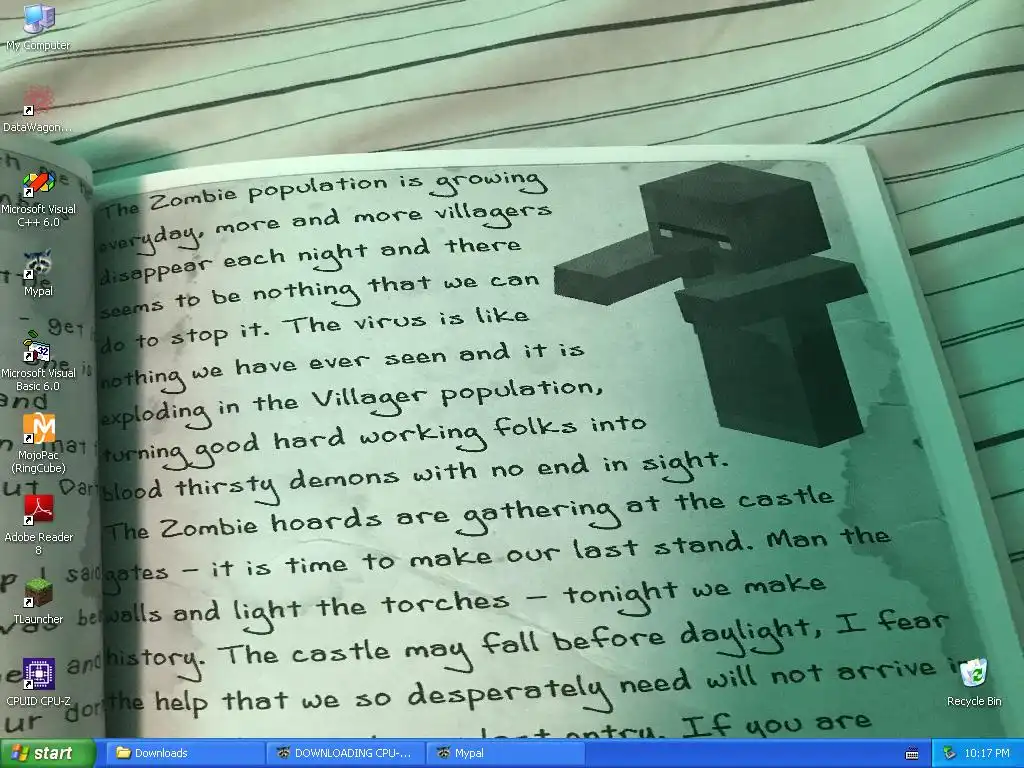 My Computer
DataWagon...
Microsoft Visual
C++ 6.0
Mypal
Microsoft Visual
Basic 6.0
MojoPac
(RingCube)
Adobe Reader
8
TLauncher
CPUID CPU-Z
The Zombie population is growing
everyday, more and more villagers
disappear each night and there
seems to be nothing that we can
do to stop it. The virus is like
nothing we have ever seen and it is
exploding in the Villager population,
turning good hard working folks into
blood thirsty demons with no end in sight.
The Zombie hoards are gathering at the castle
gates – it is time to make our last stand. Man the
walls and light the torches – tonight we make
history. The castle may fall before daylight, I fear
the help that we so desperately need will not arrive
entry. If you are
Recycle Bin
start
Downloads
DOWNLOADING CPU-...
Mypal
10:17 PM